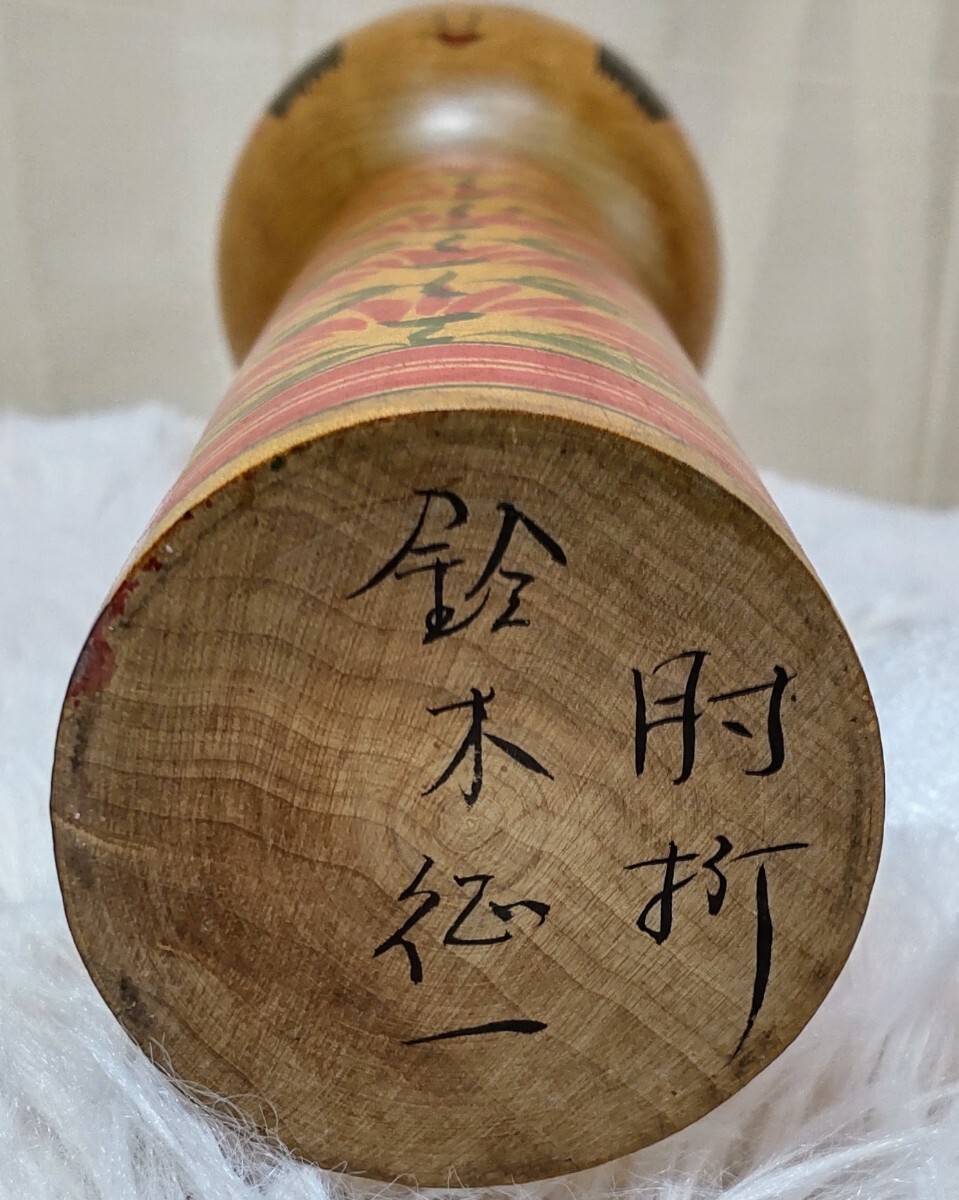 肘折
鈴木征一